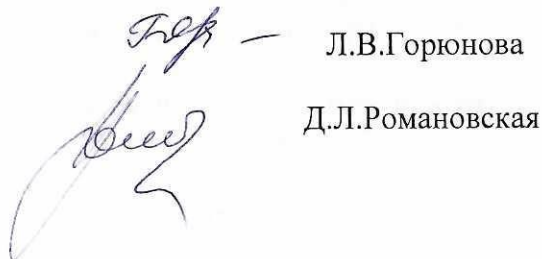 Л.В.Горюнова
Д.Л.Романовская